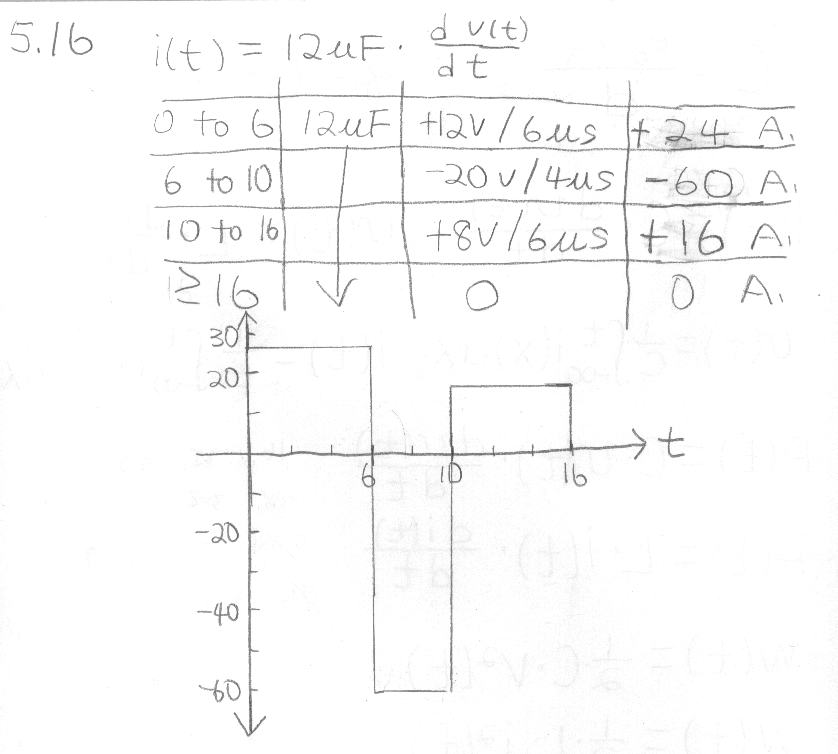 5.16 i(t) = 12uF · d v(t) / dt
0 to 6 12uF +12V/6us +24 A.
6 to 10 -20V/4us -60 A.
10 to 16 +8V/6us +16 A.
≥16 0 0 A.
30
20
t
6 10 16
-20
-40
-60